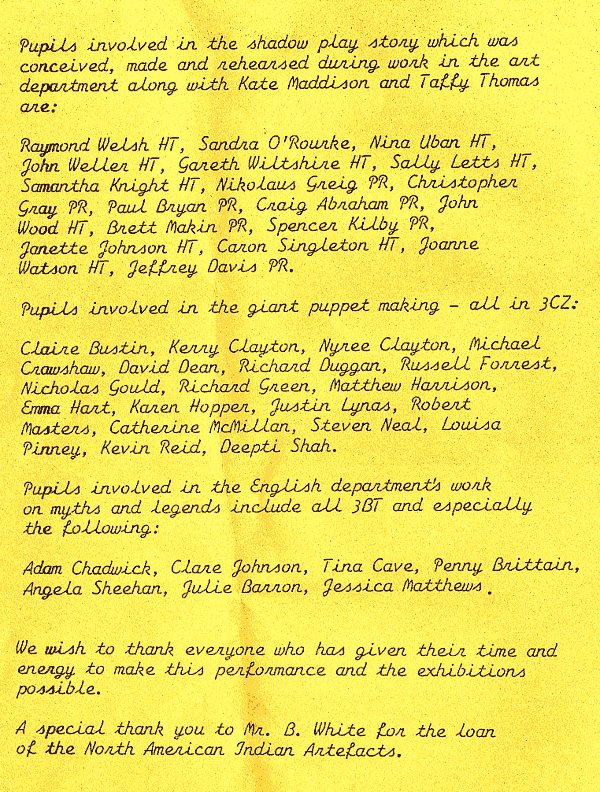 Pupils involved in the shadow play story which was
conceived, made and rehearsed during work in the art
department along with Kate Maddison and Taffy Thomas
are:
Raymond Welsh HT, Sandra O'Rourke, Nina Uban HT,
John Weller HT, Gareth Wiltshire HT, Sally Letts HT,
Samantha Knight HT, Nikolaus Greig PR, Christopher
Gray PR, Paul Bryan PR, Craig Abraham PR, John
Wood HT, Brett Makin PR, Spencer Kilby PR,
Janette Johnson HT, Caron Singleton HT, Joanne
Watson HT, Jeffrey Davis PR.
Pupils involved in the giant puppet making - all in 3CZ:
Claire Bustin, Kerry Clayton, Nyree Clayton, Michael
Crawshaw, David Dean, Richard Duggan, Russell Forrest,
Nicholas Gould, Richard Green, Matthew Harrison,
Emma Hart, Karen Hopper, Justin Lynas, Robert
Masters, Catherine McMillan, Steven Neal, Louisa
Pinney, Kevin Reid, Deepti Shah.
Pupils involved in the English department's work
on myths and legends include all 3BT and especially
the following:
Adam Chadwick, Clare Johnson, Tina Cave, Penny Brittain,
Angela Sheehan, Julie Barron, Jessica Matthews.
We wish to thank everyone who has given their time and
energy to make this performance and the exhibitions
possible.
A special thank you to Mr. B. White for the loan
of the North American Indian Artefacts.